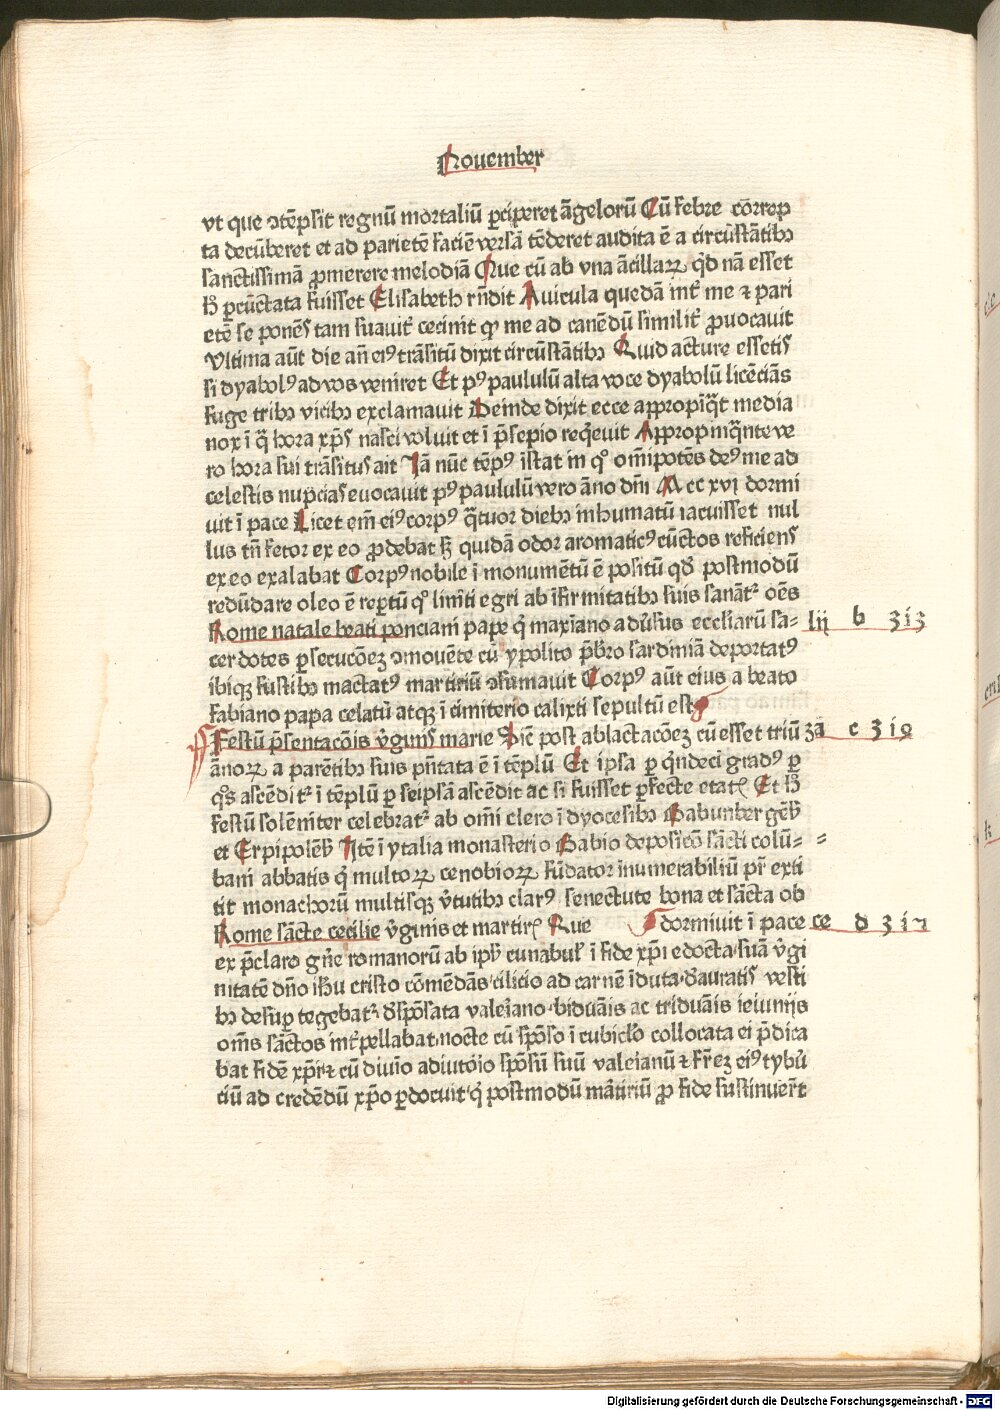 Nouember
vt que ↄtēpsit regnū mortaliū ꝑciꝑeret āgelorū Cū febre cōrrep
ta decūberet et ad parietē faciē versā tēderet audita ē a circūstātibꝫ
sanctissimā ꝓmerere melodiā Que cū ab vna ācillaꝝ qd̄ nā esset
hͦ ꝑcūctata fuisset Elisabeth rn̄dit Auicula quedā int̄ me ⁊ pari
etē se ponēs tam suauit̄ cecinit qͥ me ad canēdū similit̄ ꝓuocauit
Vltima aūt die an̄ eiꝰ trāsitū dixit circūstātibꝫ Quid acture essetis
si dyabolꝰ ad vos veniret Et pꝰ paululū alta voce dyabolū licēciās
fuge tribꝫ vicibꝫ exclamauit Deinde dixit ecce appropīq̄t media
nox ī q̄ hora xp̄s nasci voluit et ī p̄sepio req̇euit Appropinq̄nte ve
ro hora sui trāsitus ait Iā nūc tēpꝰ īstat in qͦ om̄ipotēs deꝰ me ad
celestis nupcias euocauit pꝰ paululū vero āno dn̄i M cc xvi dormi
uit ī pace Licet em̄ eiꝰ corpꝰ q̄tuor diebꝫ inhumatū iacuisset nul
lus tn̄ fetor ex eo ꝓdebat sꝫ quidā odor aromaticꝰ cūctos reficiens
ex eo exalabat Corpꝰ nobile ī monumētū ē positū qd̄ postmodū
redūdare oleo ē reꝑtū qͦ liniti egri ab īfirmitatibꝫ suis sanāt᷑ oēs
Rome natale beati ponciani pape q̇ maxīano aduͥsus eccl̄iarū sa= lij b 313
cerdotes ꝑsecucōeꝫ ↄmouēte cū ypolito p̄bro sardiniā deportatꝰ
ibiqꝫ fustibꝫ mactatꝰ martiriū ↄsumauit Corpꝰ aūt eius a beato
fabiano papa celatū atqꝫ ī cimiterio calixti sepultū est
Festū p̄sentacōis v̇ginis marie Hic post ablactacōeꝫ cū esset triū ʒā c 310
ānoꝝ a parētibꝫ suis pn̄tata ē ī tēplū Et ipsa ꝑ q̇ndeci gradꝰ ꝑ
qͦs ascēdit᷑ ī tēplū ꝑ seipsā ascēdit ac si fuisset ꝑfecte etatꝭ Et hͦ
festū solēniter celebrat᷑ ab om̄i clero ī dyocesibꝫ Babunberḡeb̄
et Erpipolēb̄ Itē ī ytalia monasterio Babio deposicō sācti colū=
bani abbatis q̇ multoꝝ cenobioꝝ fūdator īnumerabiliū pr̄ exti
tit monachorū multisqꝫ v̇tutibꝫ clarꝰ senectute bona et sācta ob
Rome sācte cecilie v̇ginis et martirꝭ Que dormiuit ī pace ce d 311
ex p̄claro gn̄e romanorū ab ipͥ cunabuł ī fide xp̄i edocta suā v̇gi
nitatē dn̄o ih̄u cristo cōmēdās cilicio ad carnē īduta dauratis vesti
bꝫ desuꝑ tegebat᷑ dspōsata valeīano biduāis ac triduāis ieiunijs
om̄s sāctos int̄pellabat nocte cū spōso ī cubicl̄o collocata ei p̄dica
bat fidē xp̄i ⁊ cū diuīo adiutōio spōsū suū valeianū ⁊ fr̄eꝫ eiꝰ tybu̇
ciū ad credēdū xp̄o ꝑdocuit q̇ postmodū mātiriū ꝓ fide sustinuer̄t
Digitalisierung gefördert durch die Deutsche Forschungsgemeinschaft - DFG